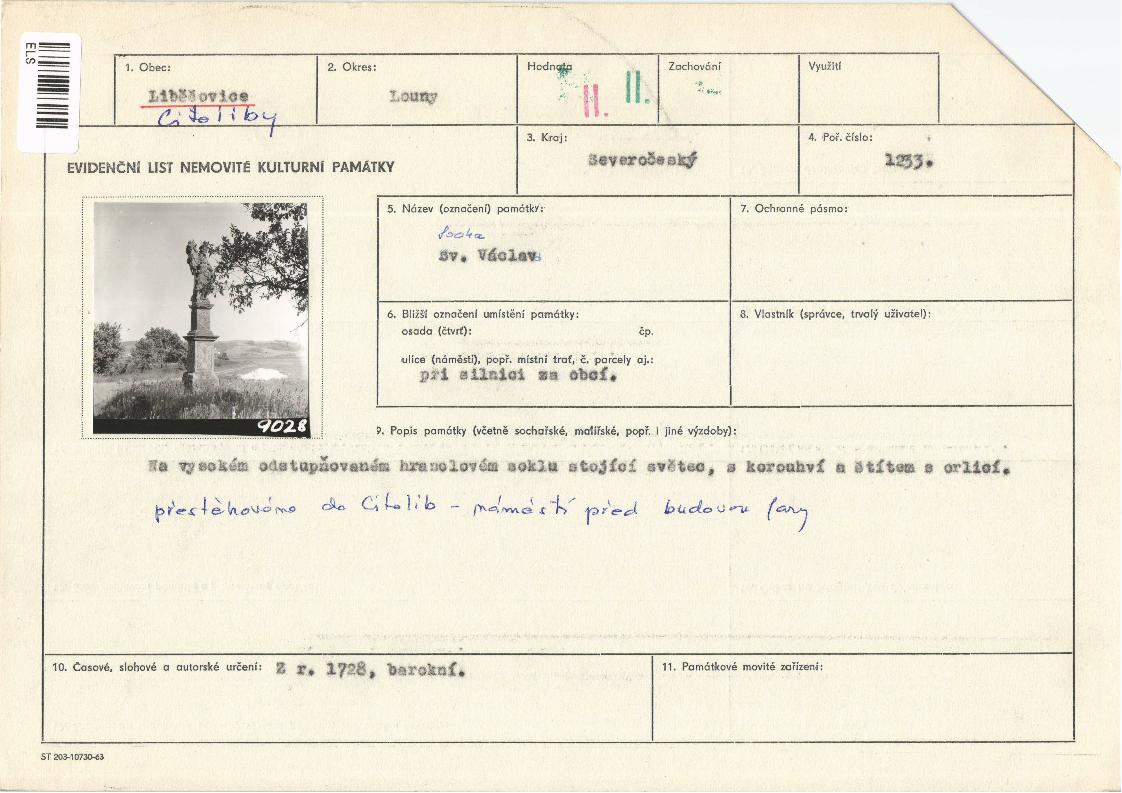 ELS
1. Obec:
Liběšovice
Citoliby
2. Okres:
Louny
Hodnota
II. II.
Zachování
Využití
EVIDENČNÍ LIST NEMOVITÉ KULTURNÍ PAMÁTKY
3. Kraj:
Severočeský
4. Poř. číslo:
1233.
9028
5. Název (označení) památky:
socha
Sv. Václav
7. Ochranné pásmo:
6. Bližší označení umístění památky:
osada (čtvrť): čp.
ulice (náměstí), popř. místní trať, č. parcely aj.:
při silnici za obcí.
8. Vlastník (správce, trvalý uživatel):
9. Popis památky (včetně sochařské, malířské, popř. i jiné výzdoby):
Na vysokém odstupňovaném hranolovém soklu stojící světec, s korouhví a štítem s orlicí.
přestěhováno do Citolib – náměstí před budovou fary
10. Časové, slohové a autorské určení: Z r. 1728, barokní.
11. Památkové movité zařízení:
ST 203-10730-63